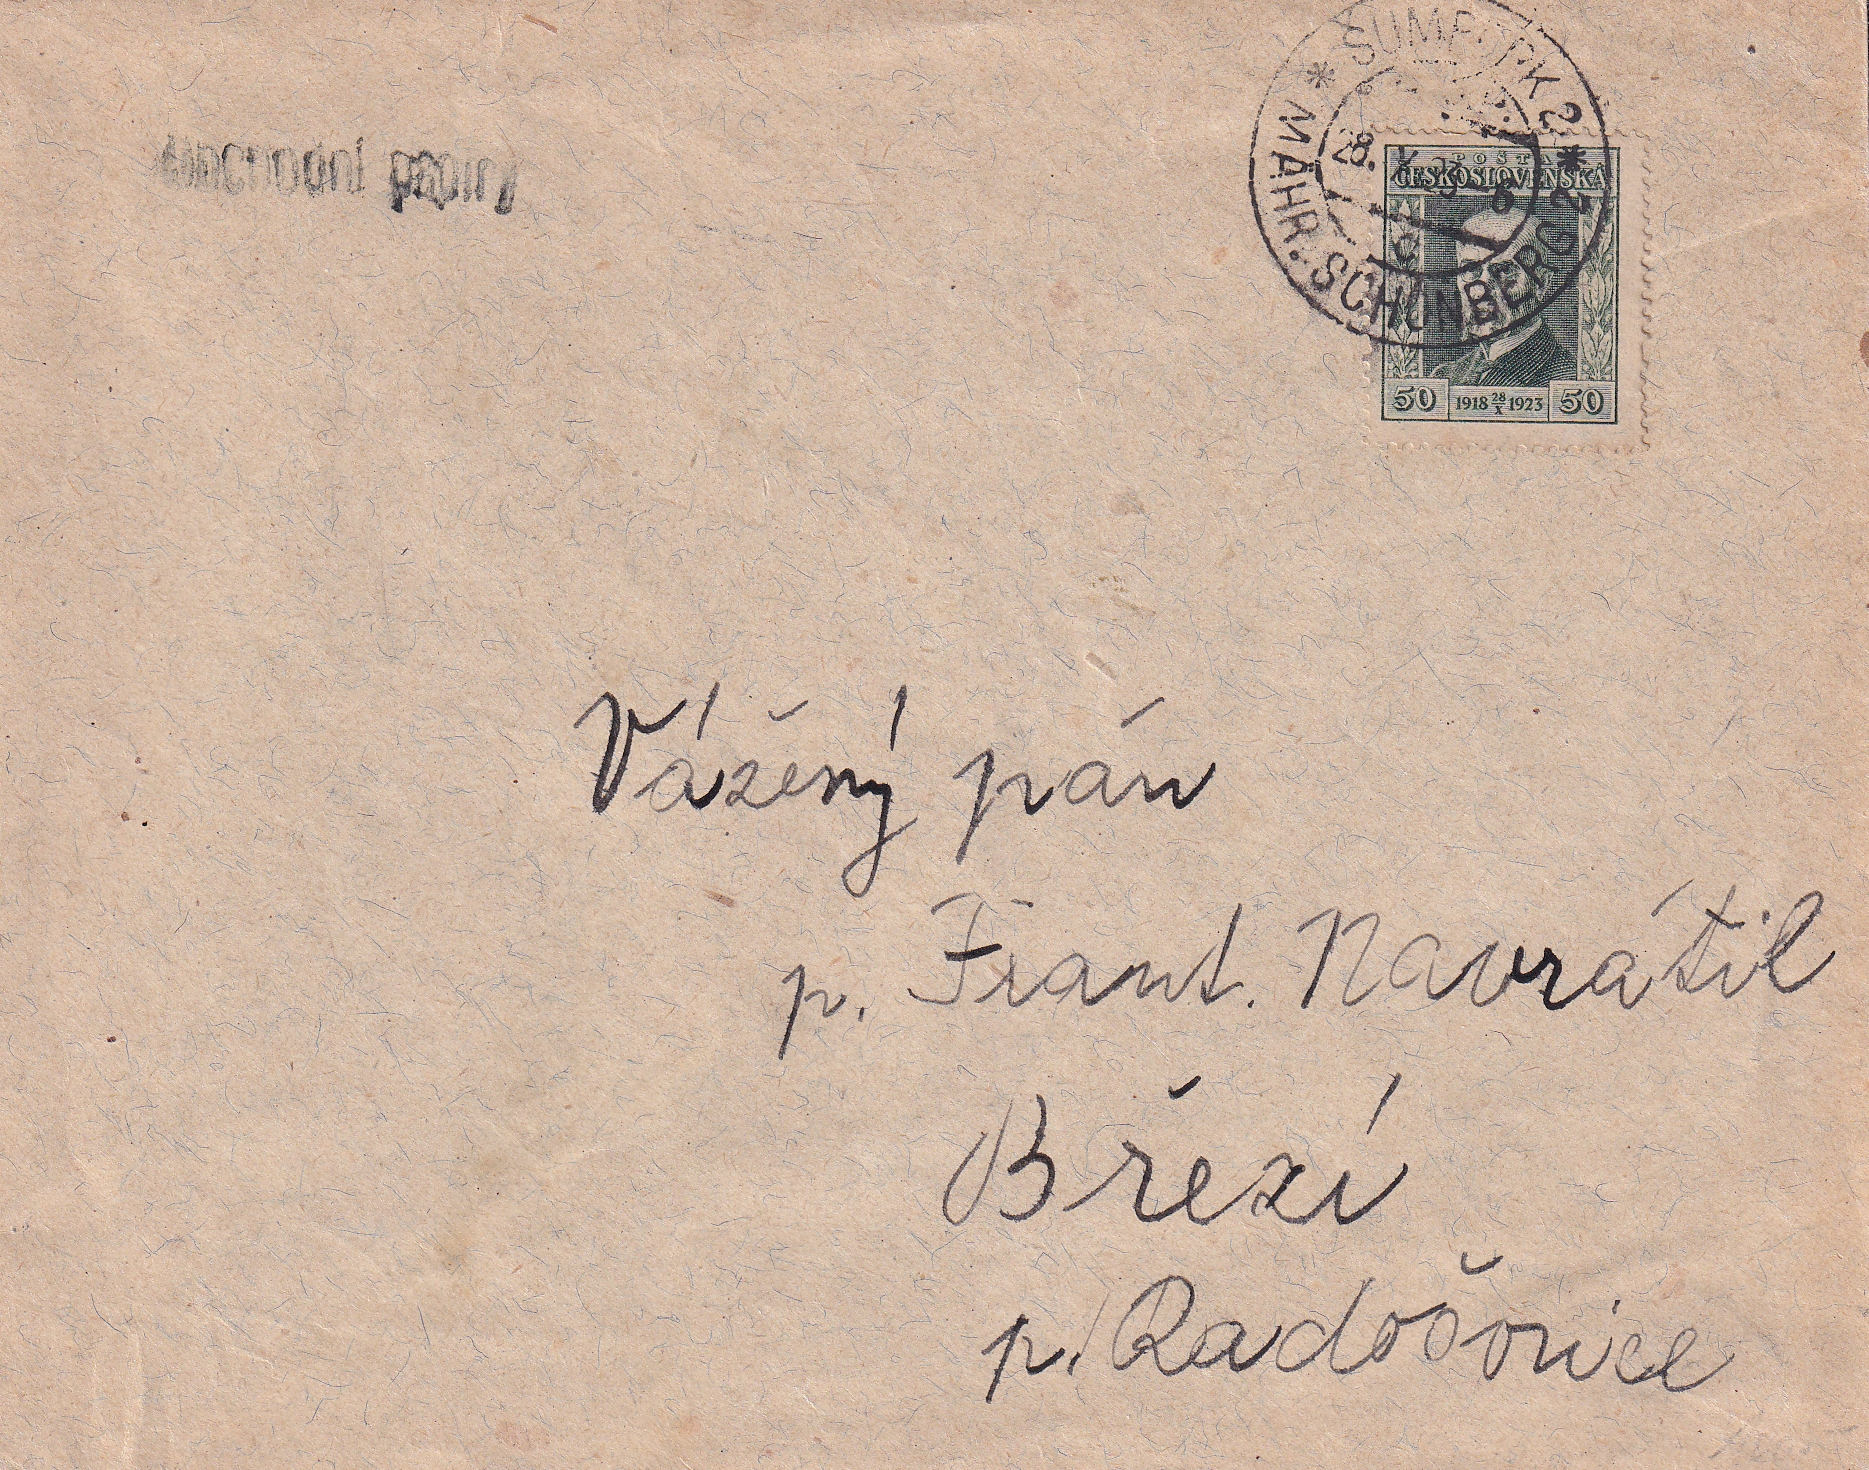 ŠUMPERK 2
* MÄHR. SCHÖNBERG 2 *
28. X. 23 - 8
C
POŠTA
ČESKOSLOVENSKÁ
50 1918 28/X 1923 50
Vážený pán
p. Frant. Navrátil
Březí
p. Radošovice